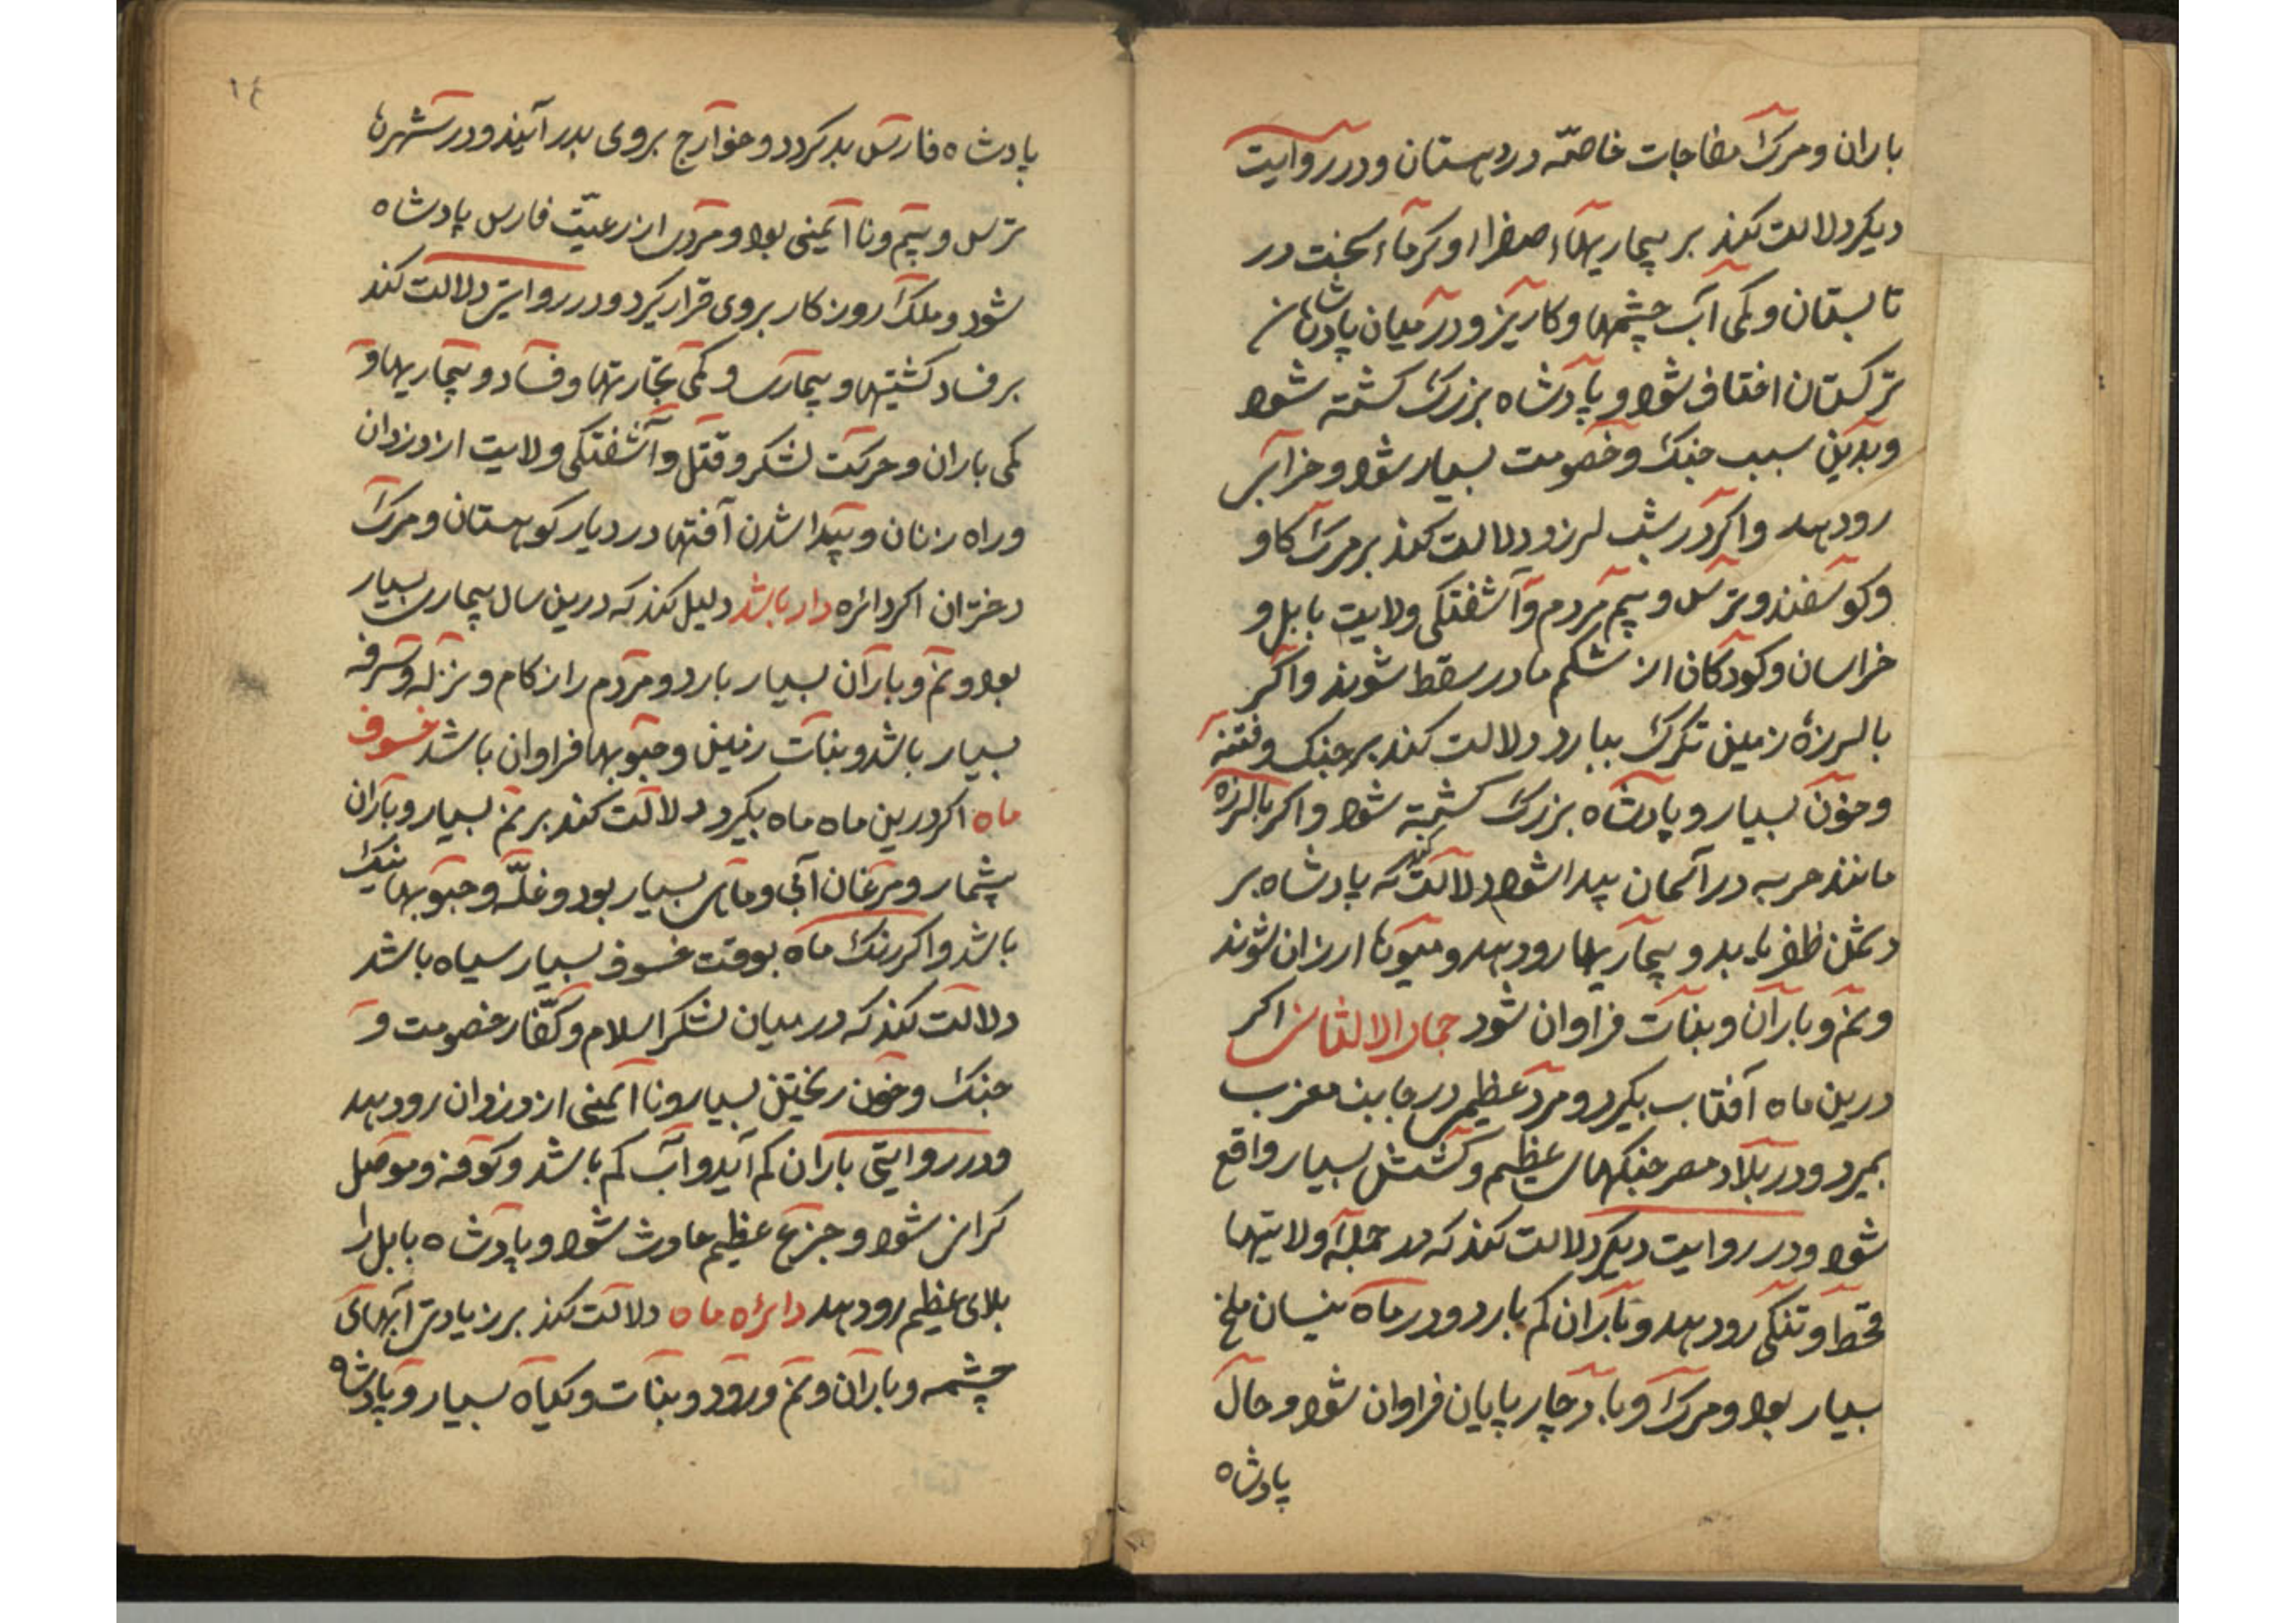 باران و مرک مفاجات خاصّه در دهستان و در روایت
دیکر دلالت کند بر بیماریهاء صفرا و کرماء سخت در
تابستان و کمی آب چشمها و کاریز و در میان پادشاهان
ترکستان اختلاف شود و پادشاه بزرک کشته شود
و بدین سبب جنک و خصومت بسیار شود و خرابی
رو دهد و اکر در شب لرزد دلالت کند بر مرک کاو
و کوسفند و ترس و بیم مردم و آشفتکی ولایت بابل و
خراسان و کودکان از شکم مادر سقط شوند و اکر
با لرزهٔ زمین تکرک ببارد دلالت کند بر جنک و فتنه
و خون بسیار و پادشاه بزرک کشته شود و اکر با لرزه
مانند حربه در آسمان پیدا شود دلالت کند که پادشاه بر
دشمن ظفر یابد و بیماریها رو دهد و میوها ارزان شوند
و نم و باران و نبات فراوان شود جماد الالثانی اکر
درین ماه آفتاب بکیرد و مرد عظیمی در جانب مغرب
بمیرد و در بلاد مصر جنکهای عظیم و کشش بسیار واقع
شود و در روایت دیکر دلالت کند که در جمله ولایتها
قحط و تنکی رو دهد و باران کم بارد و در ماه نیسان ملخ
بسیار بود و مرک و با در چار پایان فراوان شود و حال
پادشاه
١٤
پادشاه فارس بد کردد و خوارج بروی بدر آیند و در شهرها
ترس و بیم و نا ایمنی بود و مردی از رعیّت فارس پادشاه
شود و ملک روزکار بروی قرار کیرد و در روایتی دلالت کند
بر فساد کشتیها و بیماری و کمی تجارتها و فساد و بیماریها و
کمی باران و حرکت لشکر و قتل و آشفتکی ولایت از دزدان
و راه زنان و پیدا شدن آفتها در دیار کوهستان و مرک
دختران اکر دائره دار باشد دلیل کند که درین سال بیماری بسیار
بود و نم و باران بسیار بارد و مردم را زکام و نزله و سرفه
بسیار باشد و نبات زمین و حبوبها فراوان باشد خسوف
ماه اکر درین ماه ماه بکیرد دلالت کند بر نم بسیار و باران
بیشمار و مرغان آبی و ماهی بسیار بود و غلّه و حبوبها نیک
باشد و اکر رنک ماه بوقت خسوف بسیار سیاه باشد
دلالت کند که در میان لشکر اسلام و کفّار خصومت و
جنک و خون ریختن بسیار و نا ایمنی از دزدان رو دهد
و در روایتی باران کم آید و آب کم باشد و کوفه و موصل
کرانی شود و جزع عظیم حادث شود و پادشاه بابل را
بلای عظیم رو دهد دایره ماه دلالت کند بر زیادتی آبهای
چشمه و باران و نم و رود و نبات و کیاه بسیار و پادشاه